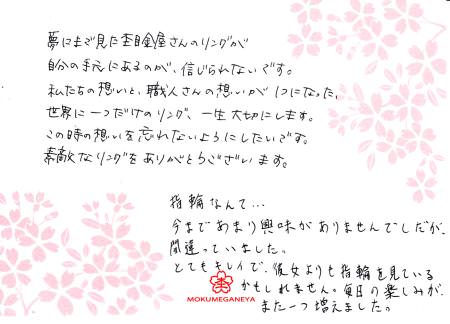 夢にまで見た杢目金屋さんのリングが
自分の手元にあるのが、信じられないです。
私たちの想いと、職人さんの想いが1つになった、
世界に一つだけのリング、一生大切にします。
この時の想いを忘れないようにしたいです。
素敵なリングをありがとうございます。
指輪なんて…
今まであまり興味がありませんでしたが、
間違っていました。
とてもキレイで、彼女よりも指輪を見ている
かもしれません。毎日の楽しみが、
また一つ増えました。
杢
MOKUMEGANEYA